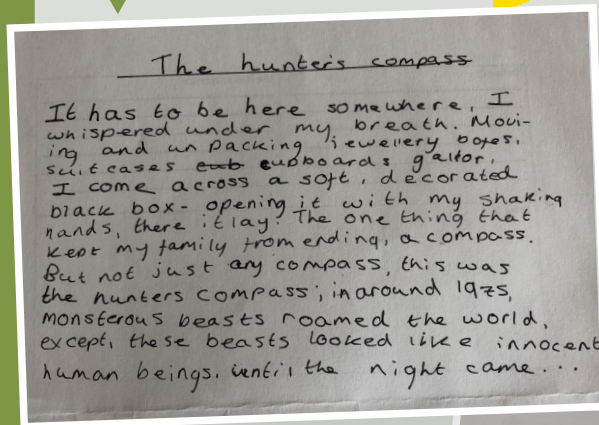 The hunter's compass
It has to be here somewhere, I
whispered under my breath. Movi-
ing and un packing jewellery boxes,
suitcases cupboards galtor,
I come across a soft, decorated
black box - opening it with my shaking
hands, there it lay! The one thing that
kept my family from ending, a compass.
But not just any compass, this was
the hunters compass; in around 1975,
monsterous beasts roamed the world,
except, these beasts looked like innocent
human beings. until the night came...